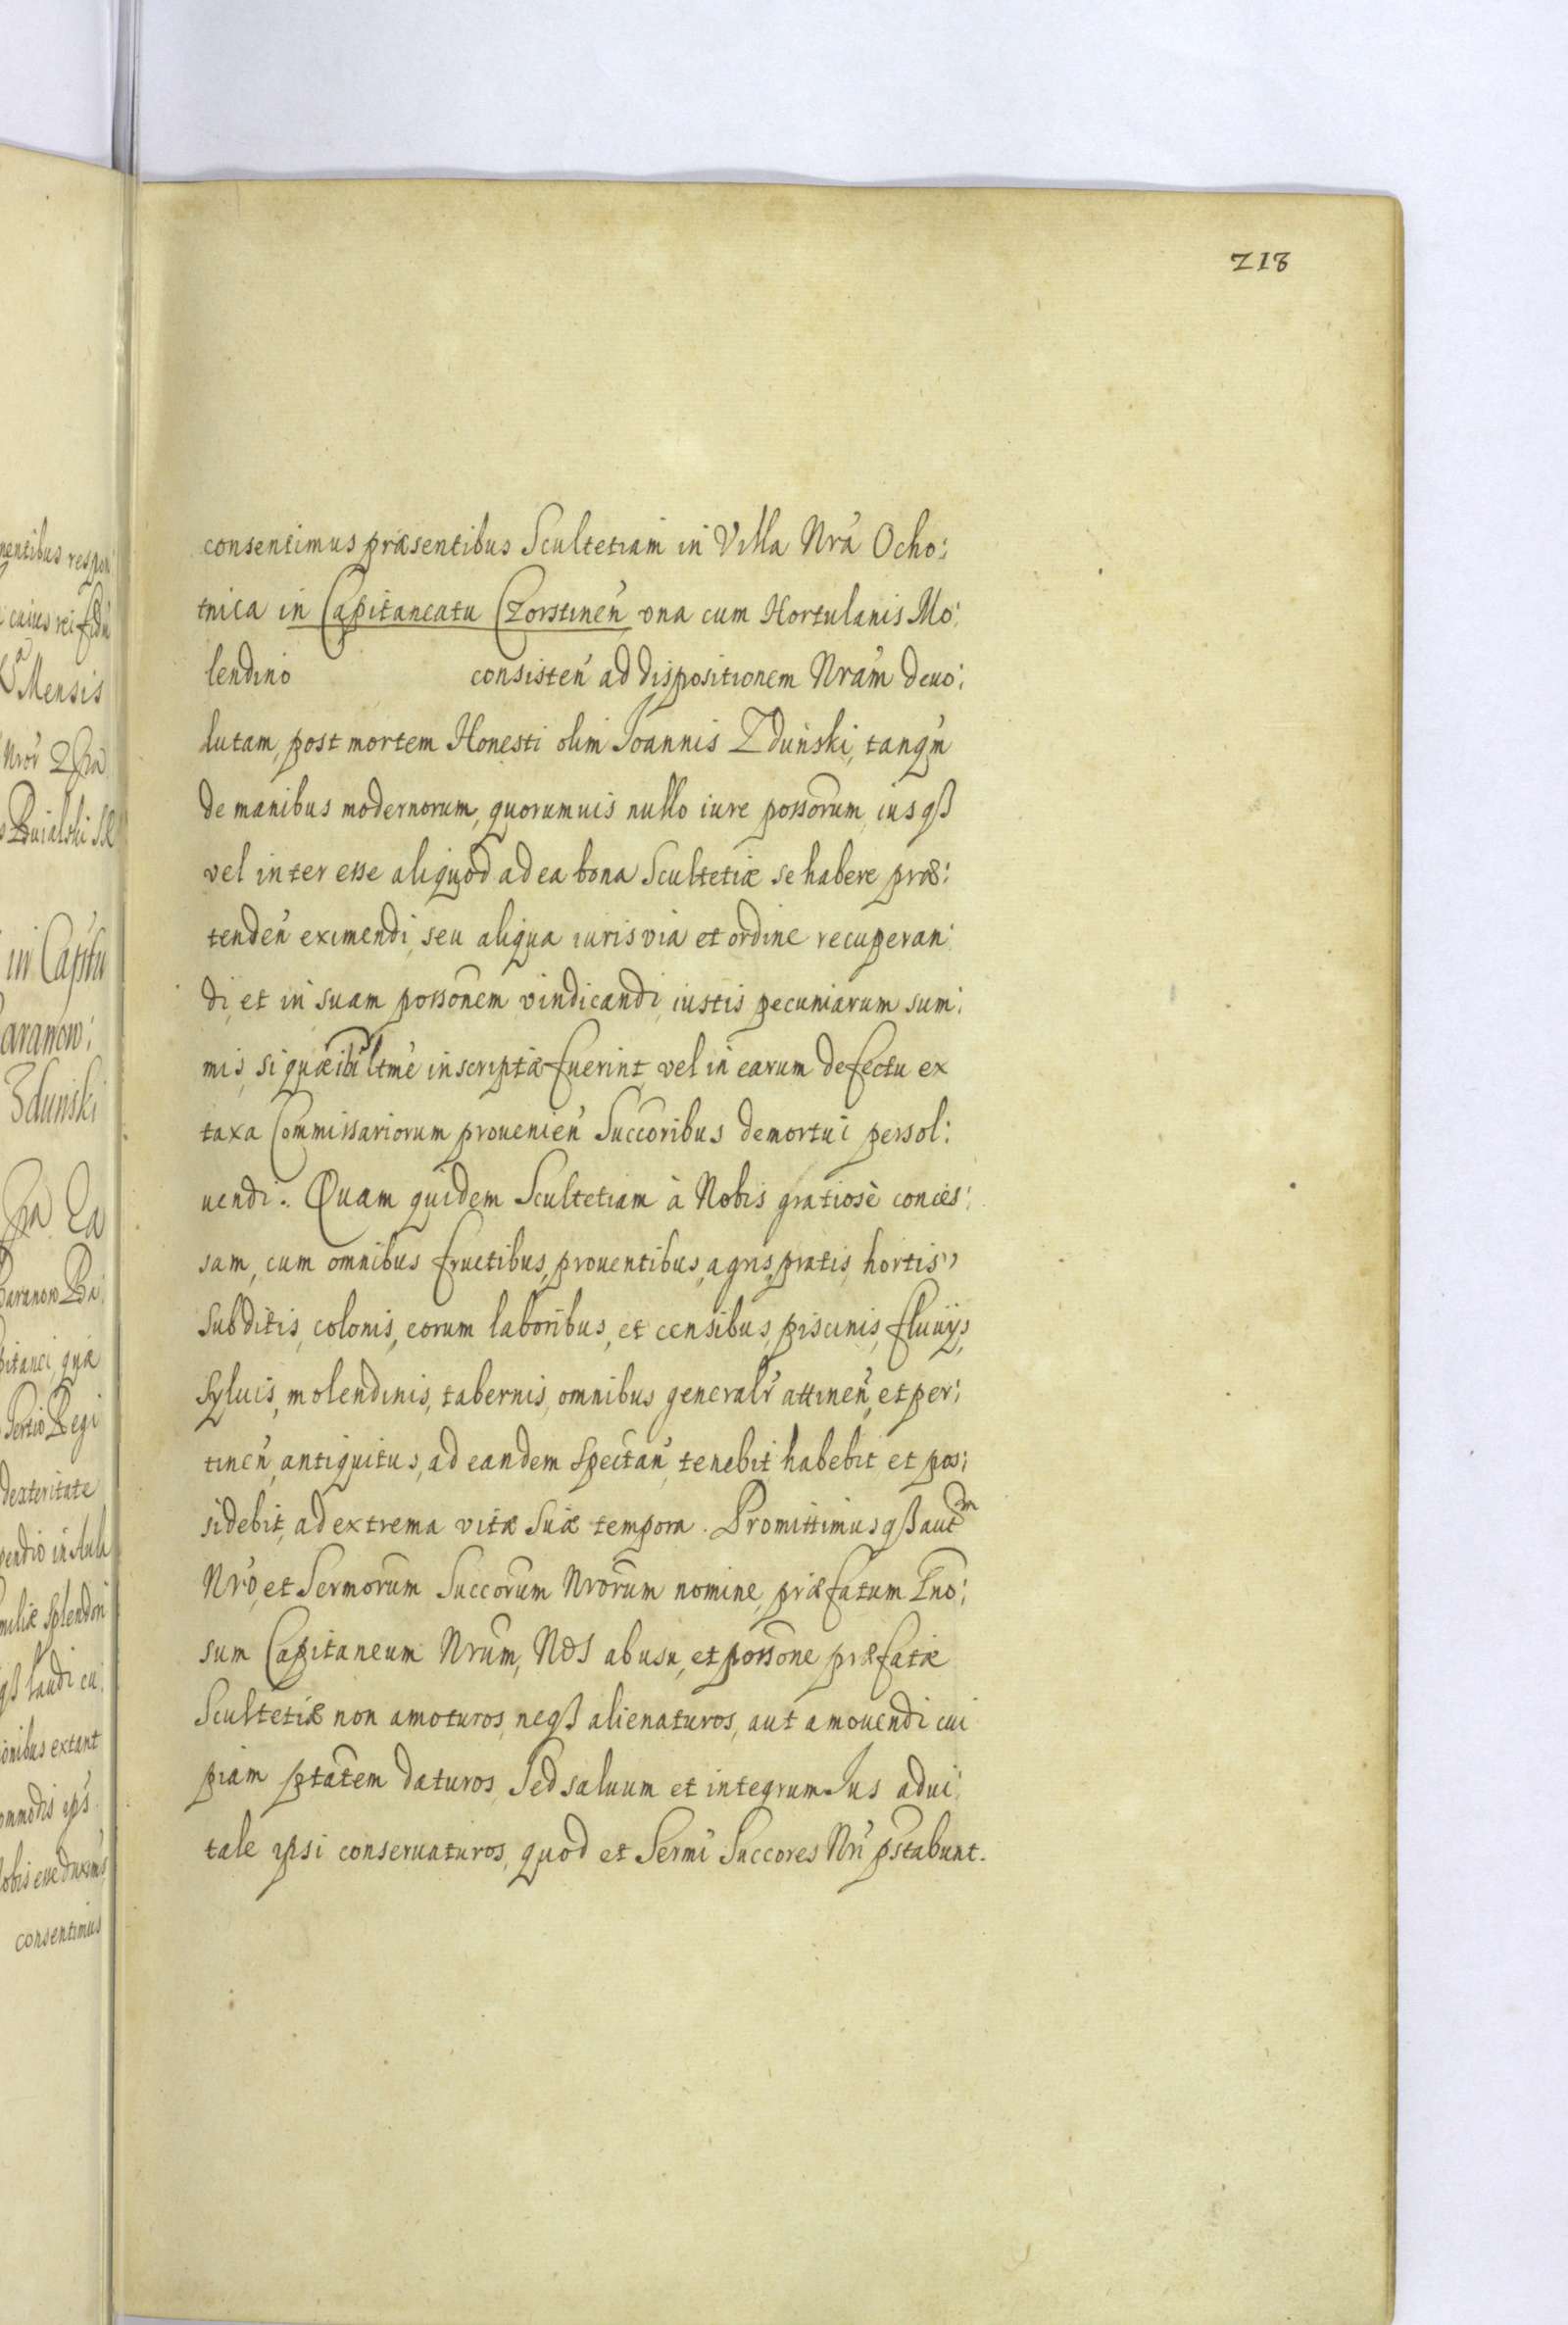 218
consentimus præsentibus Scultetiam in Villa Nrã Ocho:
tnica in Capitaneatu Czorstineñ vna cum Hortulanis Mo:
lendino consisteñ ad dispositionem Nrãm deuo:
lutam, post mortem Honesti olim Joannis Zduński, tanqm̃
de manibus modernorum, quorumuis nullo iure possõrum, iusqß
vel inter esse aliquod ad ea bona Scultetiæ se habere præ:
tendeñ eximendi, seu aliqua iuris via et ordine recuperan:
di, et in suam possõnem vindicandi, iustis pecuniarum sum:
mis, si quæ ibi ltmẽ inscriptæ fuerint, vel in earum defectu ex
taxa Commissariorum prouenieñ Succõribus demortui persol:
uendi. Quam quidem Scultetiam à Nobis gratiosè conces:
sam, cum omnibus fructibus, prouentibus, agris, pratis, hortis,
subditis, colonis, eorum laboribus, et censibus, piscinis, fluuijs,
syluis, molendinis, tabernis, omnibus generalr̃ attineñ, et per:
tineñ, antiquitus, ad eandem spectañ, tenebit habebit et pos:
sidebit, ad extrema vitæ suæ tempora. Promittimusqß autm
Nrõ, et Sermorum Succõrum Nrõrum nomine, præfatum Gno:
sum Capitaneum Nrũm, Nos ab usu, et possõne præfatæ
Scultetiæ non amoturos, neqß alienaturos, aut amouendi cui
piam ptãtem daturos, Sed saluum et integrum Jus adui:
tale ipsi conseruaturos, quod et Sermi Succores Nri pstabunt.
in Capitu
Zduński
Mensis
dexteritate
consentimus